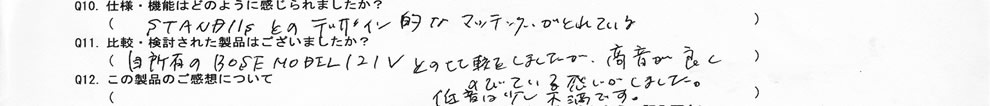 Q10. 仕様・機能はどのように感じられましたか?
( STANDIISとのデザイン的なマッチングがとれている )
Q11. 比較・検討された製品はございましたか?
( 自所有のBOSE MODEL 121Vとの比較をしましたが、高音が良く
Q12. この製品のご感想について のびている感じがしました。
( 低音は少し不満です。 )